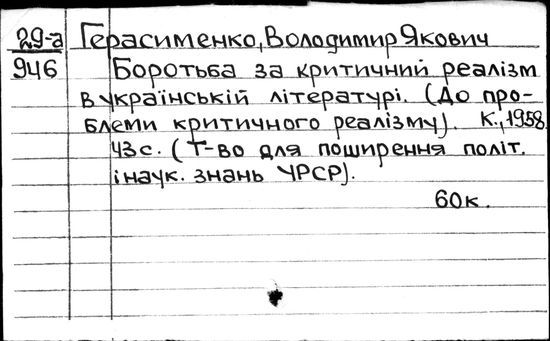 29-а Герасименко, Володимир Якович
946 Боротьба за критичний реалізм
в українській літературі. (До про-
блеми критичного реалізму). К., 1958.
43 с. (Т-во для поширення політ.
і наук. знань УРСР).
60к.